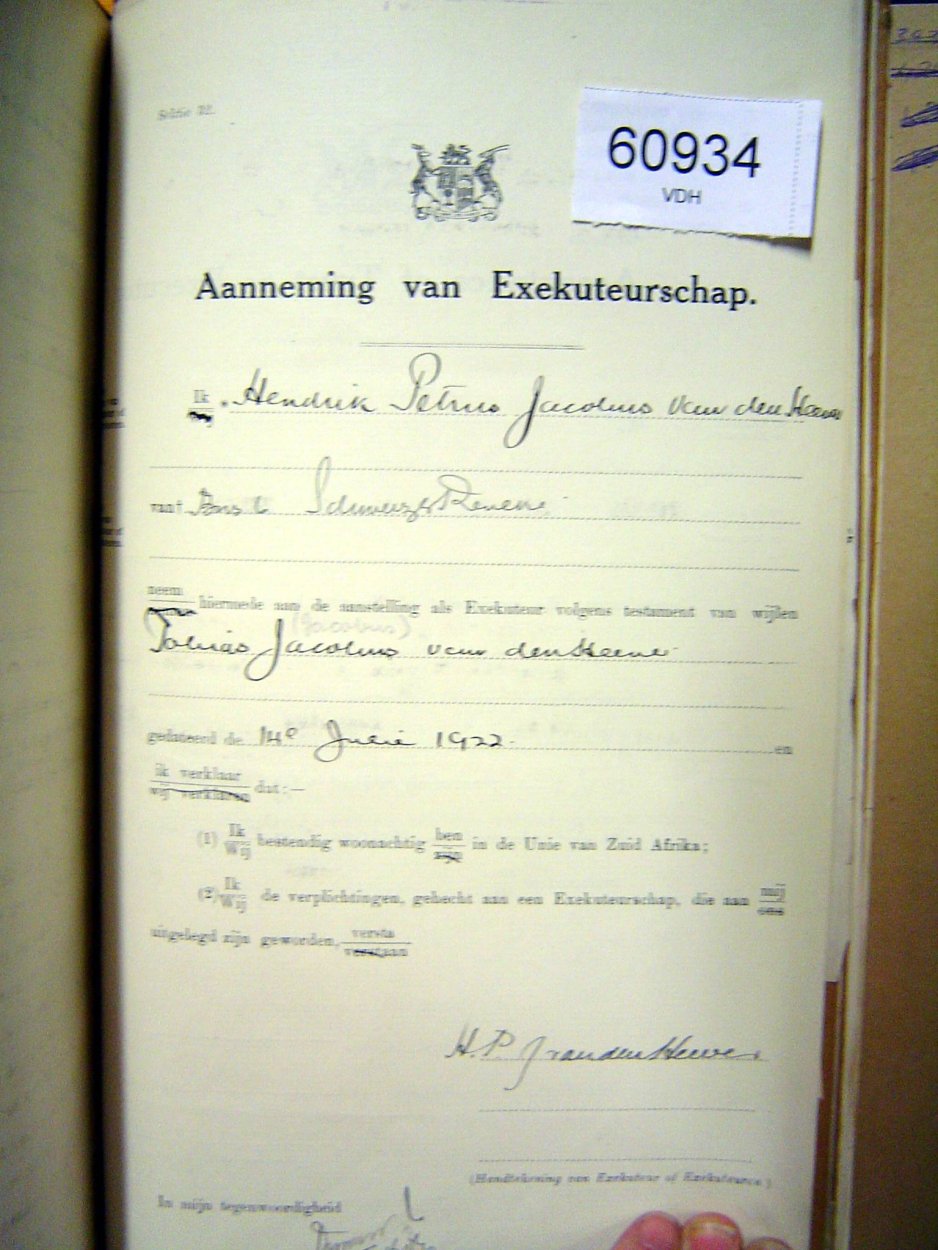 60934
VDH
Aanneming van Exekuteurschap.
Ik Hendrik Petrus Jacobus van den Heever
van Schweizer Reneke
neem hiermede aan de aanstelling als Exekuteur volgens testament van wijlen
(Jacobus)
Tobias Jacobus van den Heever
gedateerd de 14e Julie 1922. en
ik verklaar
wij verklaren dat:—
(1) Ik
Wij bestendig woonachtig ben
zijn in de Unie van Zuid Afrika;
(2) Ik
Wij de verplichtingen, gehecht aan een Exekuteurschap, die aan mij
ons
uitgelegd zijn geworden, versta
verstaan
H. P. J van den Heever
(Handtekening van Exekuteur of Exekuteuren)
In mijn tegenwoordigheid